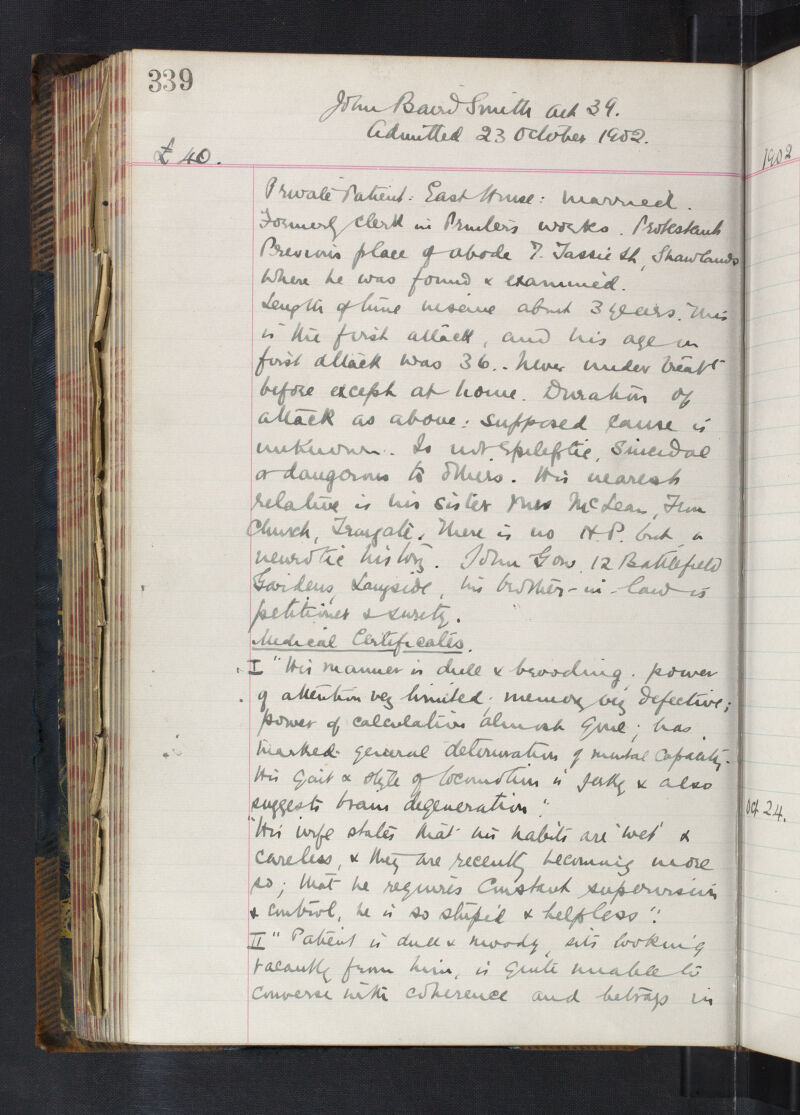 339
John Baird Smith aet 39.
Admitted 23 October 1902.
£ 40.
1902
Private Patient: East House: married.
Formerly clerk in Printers works. Protestant
Previous place of abode 7. Tassie St, Shawlands
where he was found & examined.
Length of time insane about 3 years. This
is the first attack, and his age on
first attack was 36.. Never under treatt
before except at home. Duration of
attack as above: supposed cause is
unknown. Is not epileptic, suicidal
or dangerous to others. His nearest
relative is his sister Mrs McLean,
Church, There is no H.P. but a
neurotic history. John Gow, 12 Battlefield
Gardens, Langside, his brother-in-law is
petitioner & surety.
Medical Certificates.
I "His manner is dull & brooding; power
of attention very limited; memory very defective;
power of calculation almost gone; has
marked general deterioration of mental capacity.
His gait & style of locomotion is jerky & also
suggests brain degeneration".
"His wife states that his habits are 'wet' &
careless, & they are recently becoming more
so; that he requires constant supervision
& control, he is so stupid & helpless".
II "Patient is dull & moody, sits looking
vacantly from him, is quite unable to
converse with coherence and betrays in
Oct 24.